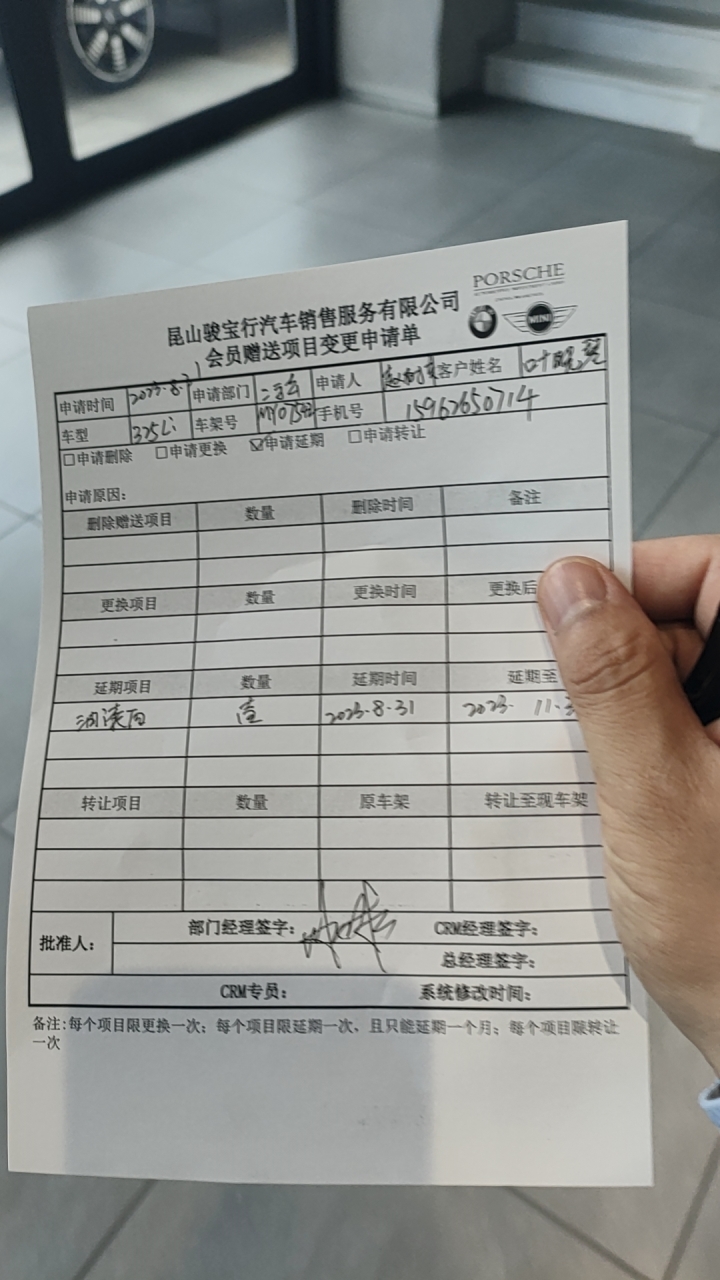 PORSCHE
昆山骏宝行汽车销售服务有限公司
MINI
会员赠送项目变更申请单
申请时间 2023.8.31 申请部门 申请人 客户姓名 叶晓
车型 325Li 车架号 MY07542 手机号 15962650714
□申请删除 □申请更换 ☑申请延期 □申请转让
申请原因：
删除赠送项目 数量 删除时间 备注
更换项目 数量 更换时间 更换后
延期项目 数量 延期时间 延期至
2023.8.31 2023. 11.
转让项目 数量 原车架 转让至现车架
批准人： 部门经理签字： CRM经理签字：
总经理签字：
CRM专员： 系统修改时间：
备注：每个项目限更换一次；每个项目限延期一次，且只能延期一个月；每个项目限转让
一次